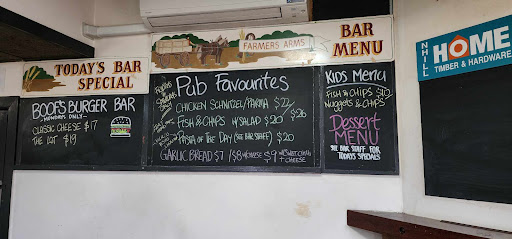 TODAY'S BAR
SPECIAL
BOOF'S BURGER BAR
MONDAYS ONLY
CLASSIC CHEESE $17
THE LOT $19
FARMERS ARMS
Pub Favourites
CHICKEN SCHNITZEL/PARMA $22/
$26
FISH & CHIPS W/SALAD $20
PASTA OF THE DAY (SEE BAR STAFF) $20
GARLIC BREAD $7 / $8 W/CHEESE $9 W/SWEET CHILLI
+ CHEESE
BAR
MENU
KIDS MENU
FISH & CHIPS $10
NUGGETS & CHIPS
DESSERT
MENU
SEE BAR STAFF FOR
TODAYS SPECIALS
NHILL
HOME
TIMBER & HARDWARE